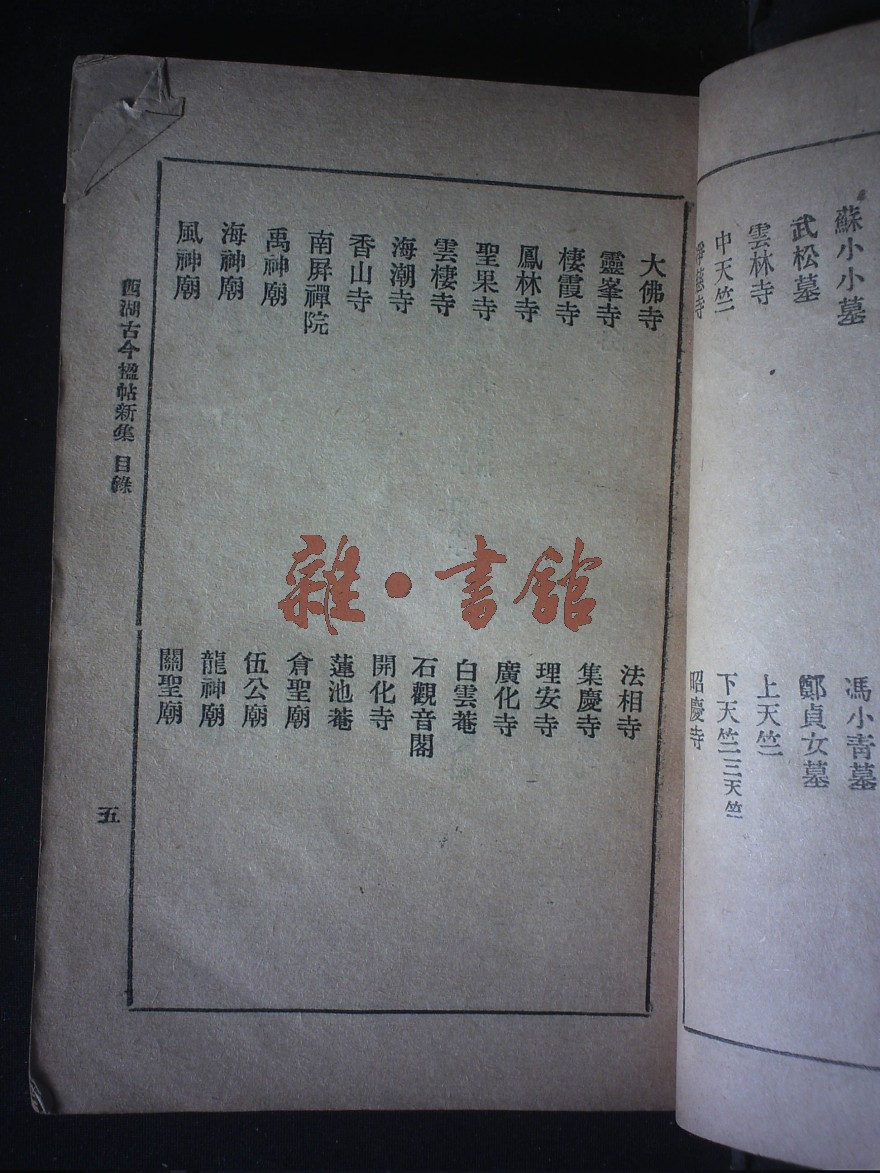 蘇小小墓
馮小青墓
武松墓
鄭貞女墓
雲林寺
上天竺
中天竺
下天竺三天竺
淨慈寺
昭慶寺
大佛寺
法相寺
靈峯寺
集慶寺
棲霞寺
理安寺
鳳林寺
廣化寺
聖果寺
白雲菴
雲棲寺
石觀音閣
海潮寺
開化寺
香山寺
蓮池菴
南屏禪院
倉聖廟
禹神廟
伍公廟
海神廟
龍神廟
風神廟
關聖廟
西湖古今楹帖新集 目錄
五
雜·書館